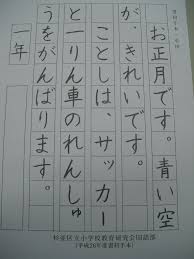 お正月です。青い空
が、きれいです。
ことしは、サッカー
と一りん車のれんしゅ
うをがんばります。
一年
杉並区立小学校教育研究会国語部
(平成26年度書初手本)